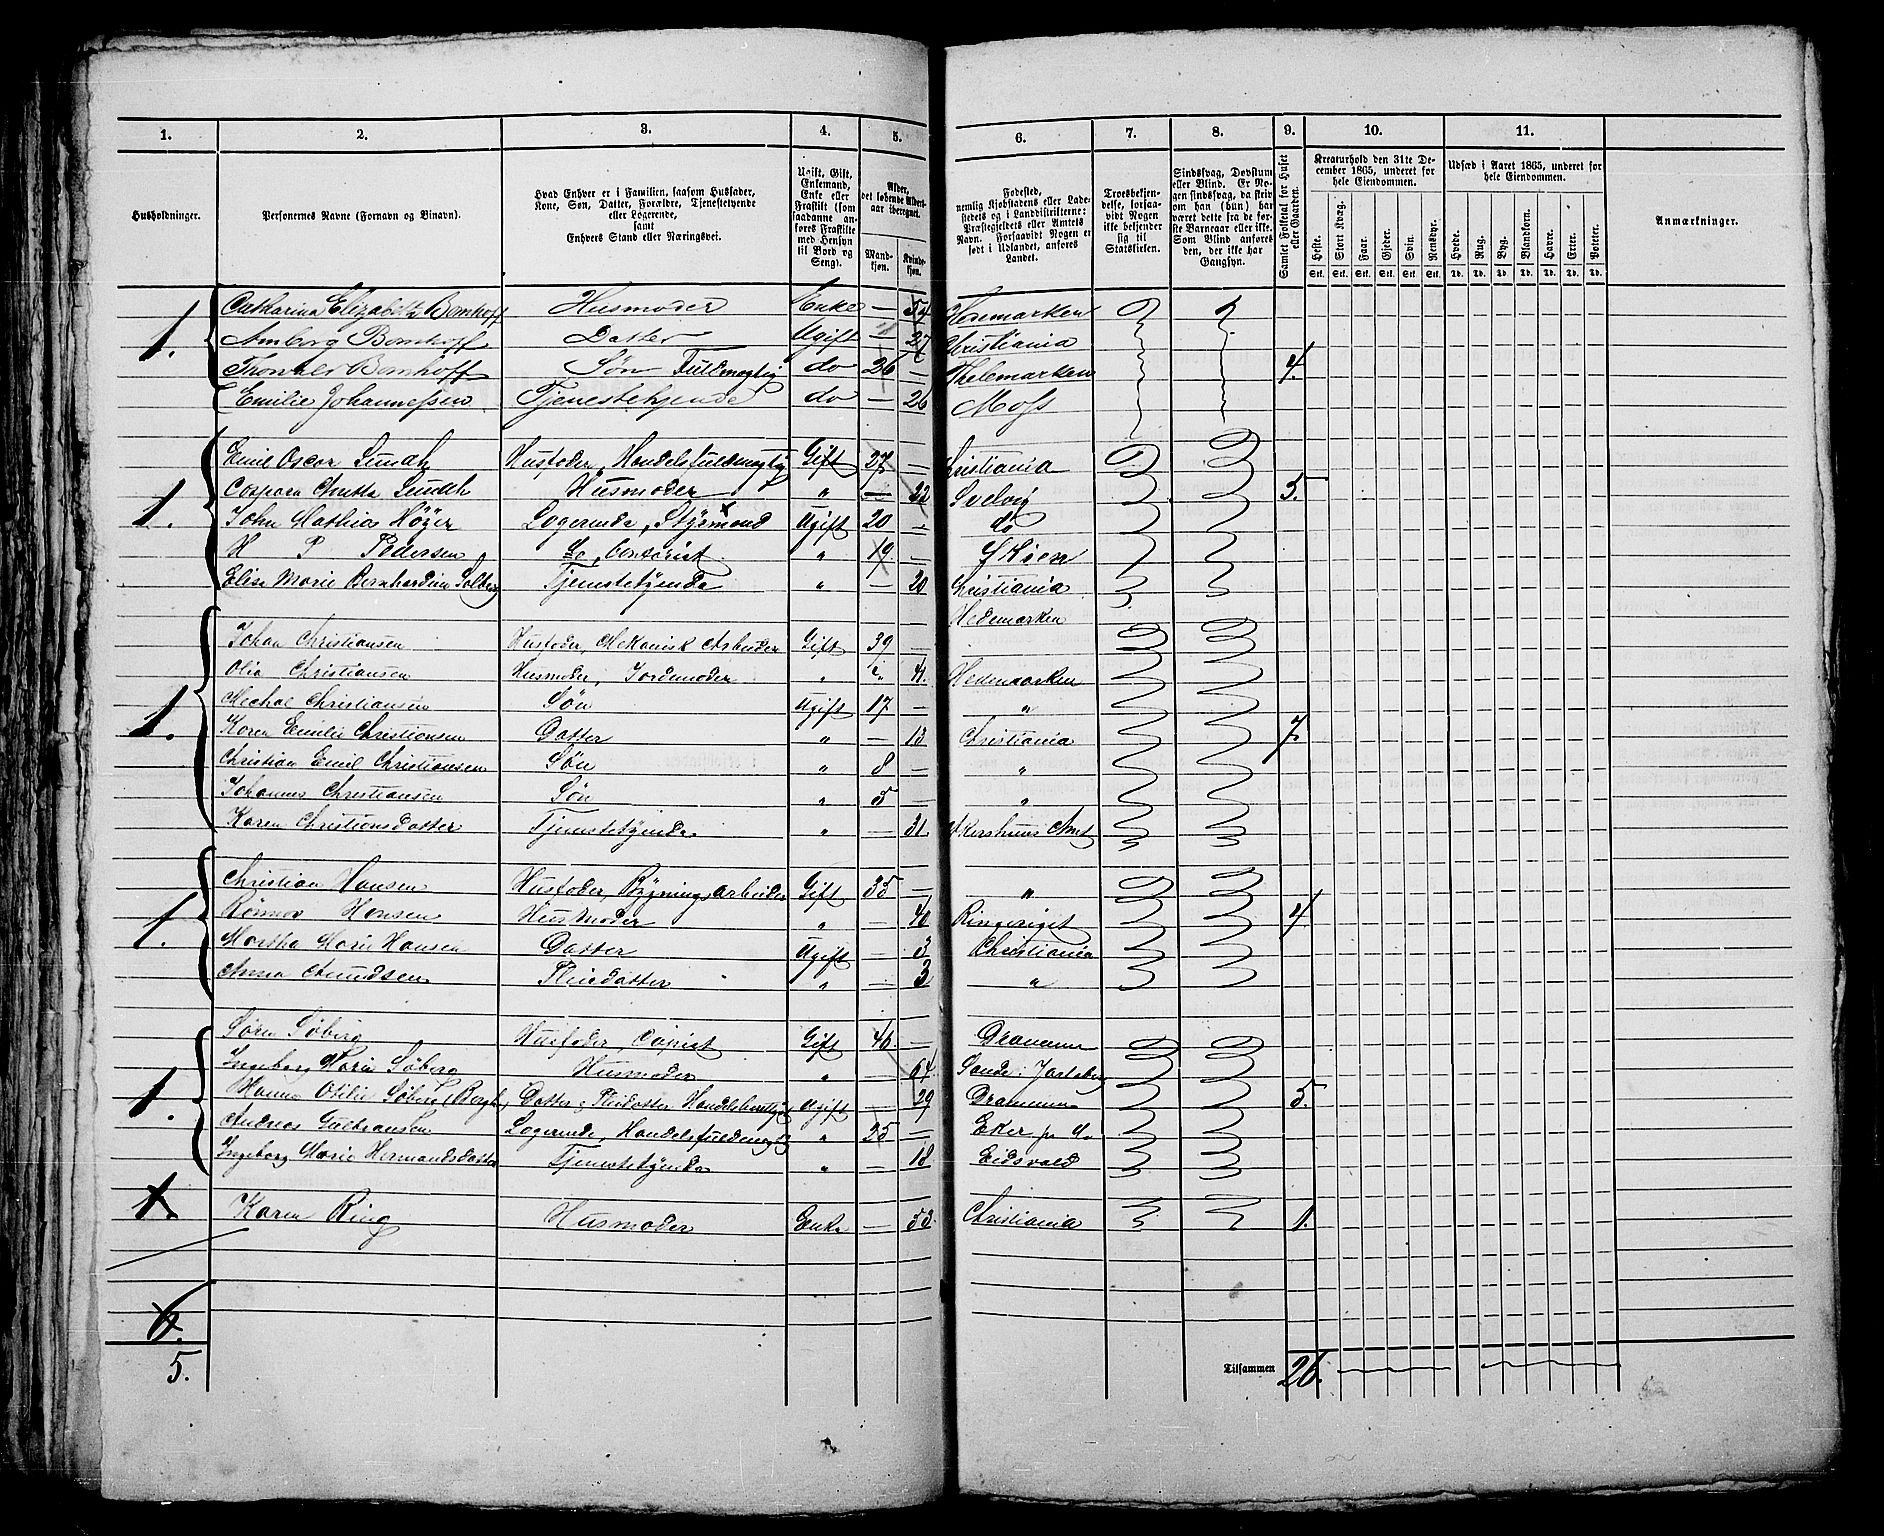 1. 2. 3. 4. 5. 6. 7. 8. 9. 10. 11.
Husholdninger.
Personernes Navne (Fornavn og Binavn).
Hvad Enhver er i Familien, saasom Husfader,
Kone, Søn, Datter, Forældre, Tjenestetyende
eller Logerende,
samt
Enhvers Stand eller Næringsvei.
Ugift, Gift,
Enkemand,
Enke eller
Fraskilt (som
saadanne an-
føres Fraskilte
med Hensyn
til Bord og
Seng).
Alder,
det løbende Alders-
aar iberegnet.
Mand-
kjøn.
Kvinde-
kjøn.
Fødested,
nemlig Kjøbstadens eller Lade-
stedets og i Landdistrikterne:
Præstegjeldets eller Amtets
Navn. Forsaavidt Nogen er
født i Udlandet, anføres
Landet.
Troesbekjen-
delse, forsaa-
vidt Nogen
ikke bekjender
sig til
Statskirken.
Sindssvag, Døvstum
eller Blind. Er No-
gen sindssvag, da skriv
om han (hun) har
været dette fra de før-
ste Barneaar eller ikke.
Som Blind anføres
den, der ikke har
Gangsyn.
Samlet Folketal for Huset
eller Gaarden.
Kreaturhold den 31te De-
cember 1865, underet for
hele Eiendommen.
Heste. Stort Kvæg. Faar. Gjeder. Svin. Rensdyr.
Stk. Stk. Stk. Stk. Stk. Stk.
Udsæd i Aaret 1865, underet for
hele Eiendommen.
Hvede. Rug. Byg. Blandkorn. Havre. Erter. Poteter.
Td. Td. Td. Td. Td. Td. Td.
Anmærkninger.
Catharina Elizabeth Bomhoff Husmoder Enke — 54 Hedemarken
1. Amborg Bomhoff Datter Ugift — 27 Christiania
Bomhoff Søn Fuldmægtig do 26 — Thelemarken 4.
Emilie Johannessen Tjenestetyende do — 26 Moss
Emil Oscar Sundt Husfader, Handelsfuldmægtig Gift 27 — Christiania
Husmoder " — 22 Svelvig 5.
1. John Mathias Høyer Logerende, Styrmand Ugift 20 — do
H P Pedersen do, Contorist " 19 — Skien
Elise Marie Bernhardine Solberg Tjenestetyende " — 20 Christiania
Hedemarken
Johan Christiansen Husfader, Mekanisk Arbeider Gift 39 —
Olia Christiansen Husmoder, Jordemoder " " 41. Hedemarken
Michal Christiansen Søn Ugift 17 — "
1. Karen Emilie Christiansen Datter " — 13 Christiania 7.
Christian Emil Christiansen Søn " 8 — "
Johannes Christiansen Søn " 5 — "
Karen Christiansdatter Tjenestetyende " — 31. Akershuus Amt
Christian Hansen Husfader, Bygningsarbeider Gift 35 — "
Rønnov Hansen Husmoder " — 40 Ringeriget 4.
1. Martha Marie Hansen Datter Ugift — 3 Christiania
Anna Amundsen Pleiedatter " — 3 "
Søren Søberg Husfader, Copist Gift 46. — Drammen
Ingeborg Marie Søberg Husmoder " — 64. Sande i Jarlsberg
1. Hanna Otilie Søberg Datter, Pleiedatter, Ugift — 29 Drammen 5.
Andreas Gulbransen Logerende, Handelsfuldmægtig " 25 — Eker pr do
Ingeborg Marie Hermandsdatter Tjenestetyende " — 18 Eidsvold
1. Karen Ring Husmoder Enke — 53. Christiania 1.
6.
5.
Tilsammen 26.